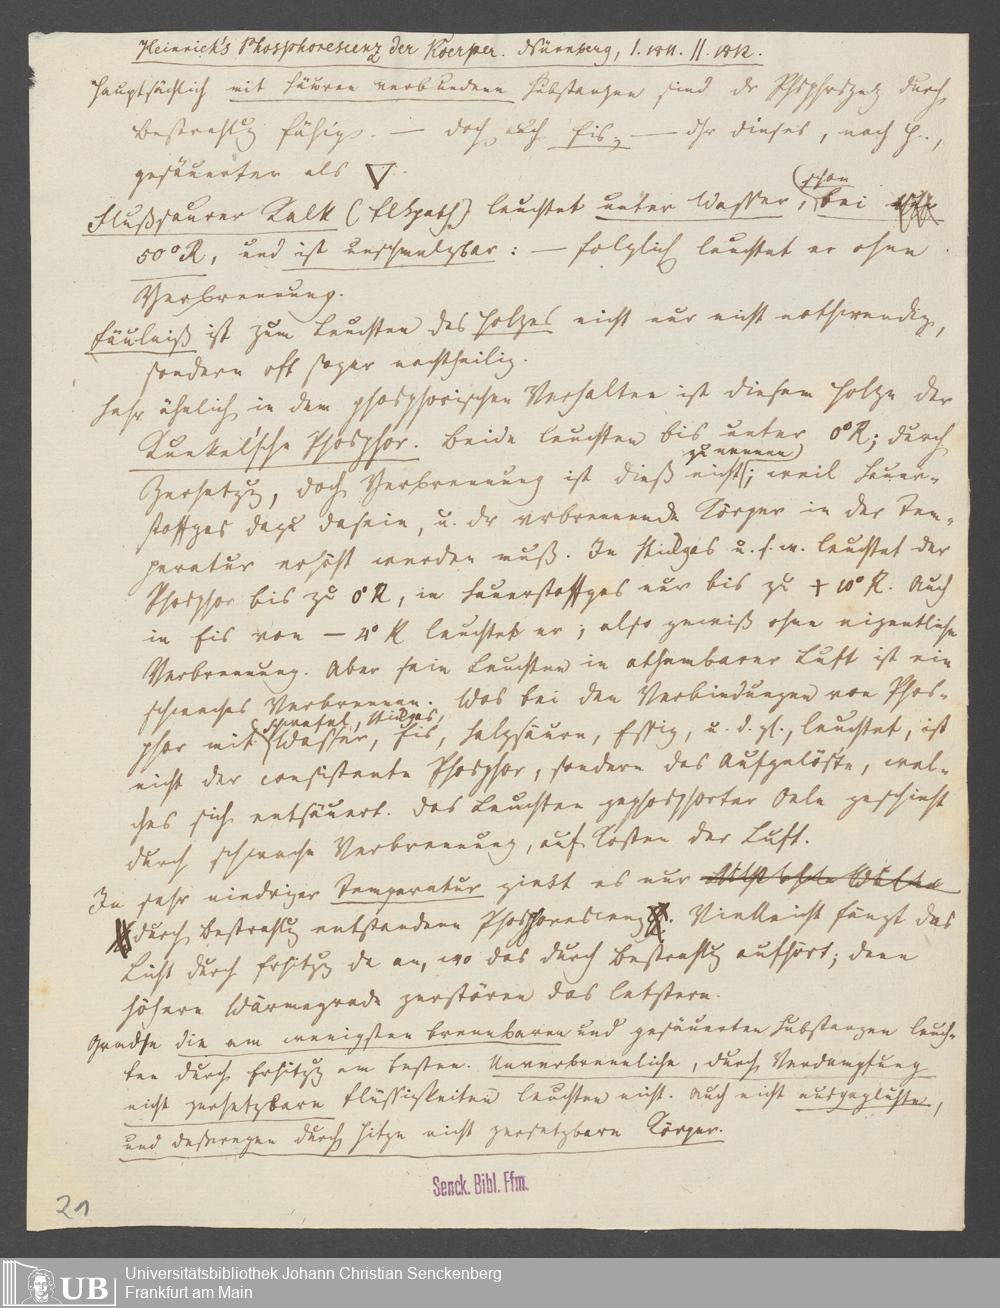 Heinrich's Phosphorescenz der Koerper. Nürnberg, I. 1811. II. 1812.
Hauptsächlich mit Säuren verbundene Substanzen sind der Phosphreszenz durch
Bestrahlg fähig. — doch auch Eis; — dieses, nach H.,
gesäuerter als ▽.
Flußsaurer Kalk (Flßspath) leuchtet unter Wasser, (schon) bei
50° R, und ist unschmelzbar: — folglich leuchtet er ohne
Verbrennung.
Fäulniß ist zum Leuchten des Holzes nicht nur nicht nothwendig,
sondern oft sogar nachtheilig.
Sehr ähnlich in dem phosphorischen Verhalten ist diesem Holze der
Kunkel'sche Phosphor. Beide leuchten bis unter 0° R; durch
zu nennen
Zersetzg, doch Verbrennung ist dieß nicht; weil Sauer-
stoffgas dazu dasein, u. der verbrennende Körper in der Tem-
peratur erhöht werden muß. In Stickgas u. s. w. leuchtet der
Phosphor bis zu 0° R, in Sauerstoffgas nur bis zu + 10° R. Auch
in Eis von – 4° R leuchtet er; also gewiß ohne eigentliche
Verbrennung. Aber sein Leuchten in athembarer Luft ist ein
schwaches Verbrennen. Was bei den Verbindungen von Phos-
Schwefel, Stickgas,
phor mit Wasser, Eis, Salzsäure, Essig, u. d. gl., leuchtet, ist
nicht der consistente Phosphor, sondern das Aufgelöste, wel-
ches sich entsäuert. Das Leuchten gephosphorter Oele geschieht
durch schwache Verbrennung, auf Kosten der Luft.
In sehr niedriger Temperatur giebt es nur
durch Bestrahlg entstandene Phosphorescenz. Vielleicht fängt das
Licht durch Erhitzg da an, wo das durch Bestrahlg aufhört; denn
höhere Wärmegrade zerstören das letztere.
Gerade die am wenigsten brennbaren und gesäuerten Substanzen leuch-
ten durch Erhitzg am besten. Unverbrennliche, durch Verdampfung
nicht zersetzbare Flüssigkeiten leuchten nicht. Auch nicht ausgeglühte,
und deswegen durch Hitze nicht zersetzbare Körper.
Senck. Bibl. Ffm.
21
UB
Universitätsbibliothek Johann Christian Senckenberg
Frankfurt am Main